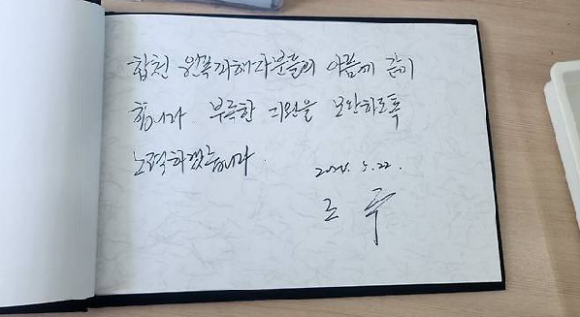 합천 원폭피해자분들의 아픔에 같이
합니다 부족한 지원을 보완하도록
노력하겠습니다.
2024. 5. 22.
조 국